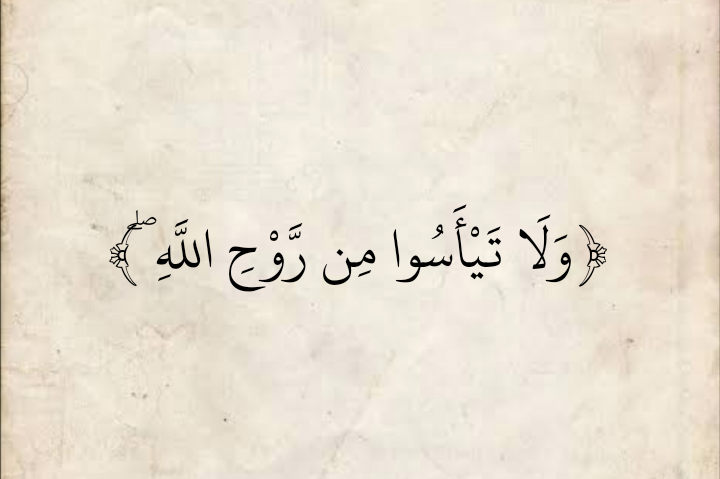 ﴿ وَلَا تَيْأَسُوا مِن رَّوْحِ اللَّهِ ۖ ﴾